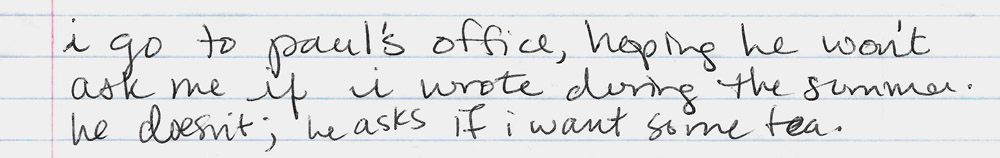 i go to paul's office, hoping he won't
ask me if i wrote during the summer.
he doesn't; he asks if i want some tea.